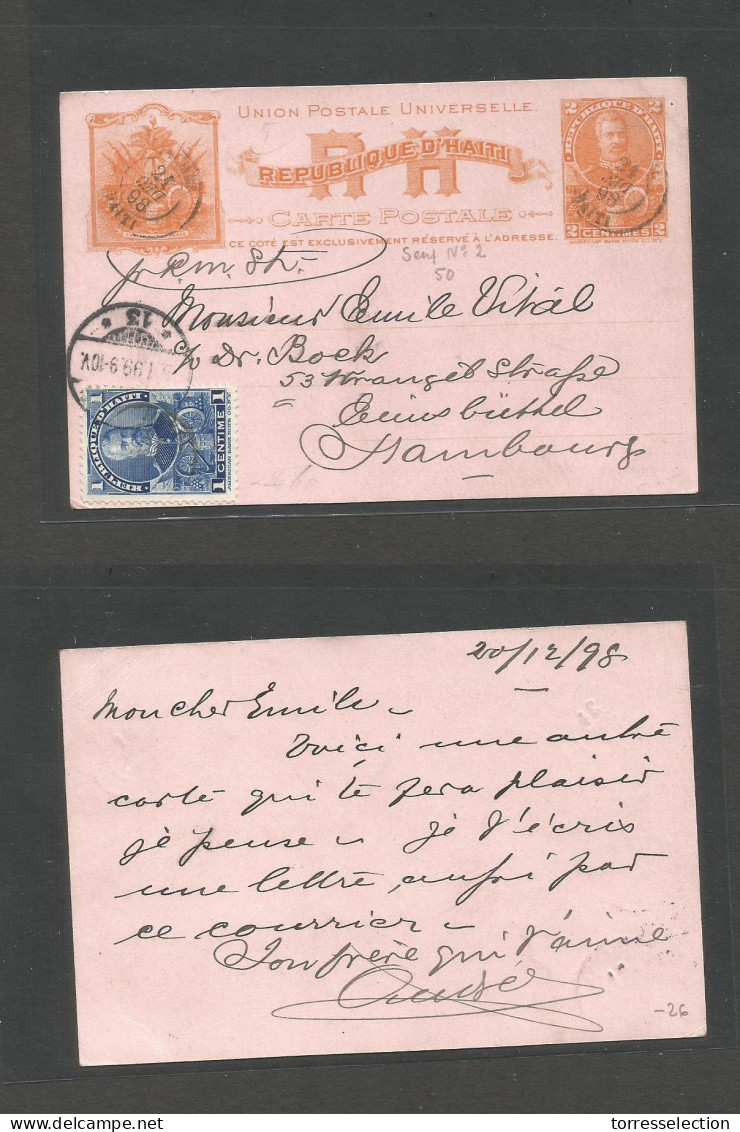 UNION POSTALE UNIVERSELLE.
RH
REPUBLIQUE D'HAITI
CARTE POSTALE
CE COTÉ EST EXCLUSIVEMENT RÉSERVÉ À L'ADRESSE.
2 REPUBLIQUE D'HAITI 2
2 CENTIMES 2
AMERICAN BANK NOTE CO. N.Y.
24
98
HAITI
24
98
HAITI
Senf No 2
50
Monsieur Emile Vital
Dr. Bock
53 Wrangel Straße
Eimsbüttel
Hambourg
13
1.99.9-10V.
1 REPUBLIQUE D'HAITI 1
CENTIME
AMERICAN BANK NOTE CO. N.Y.
20/12/98
Mon cher Emile -
Voici une autre
carte qui te fera plaisir
je pense - je t'écris
une lettre, aussi par
ce courrier -
Ton frère qui t'aime
-26
delcampe.net
torresselection